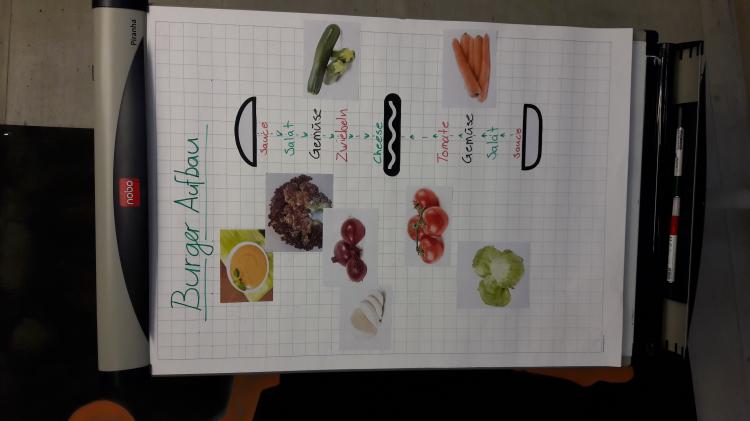 Piranha
nobo
Burger Aufbau
Sauce
Salat
Gemüse
Zwiebeln
Cheese
Tomate
Gemüse
Salat
Sauce